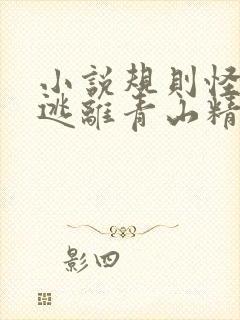 小説規則怪
逃離青山精
影四